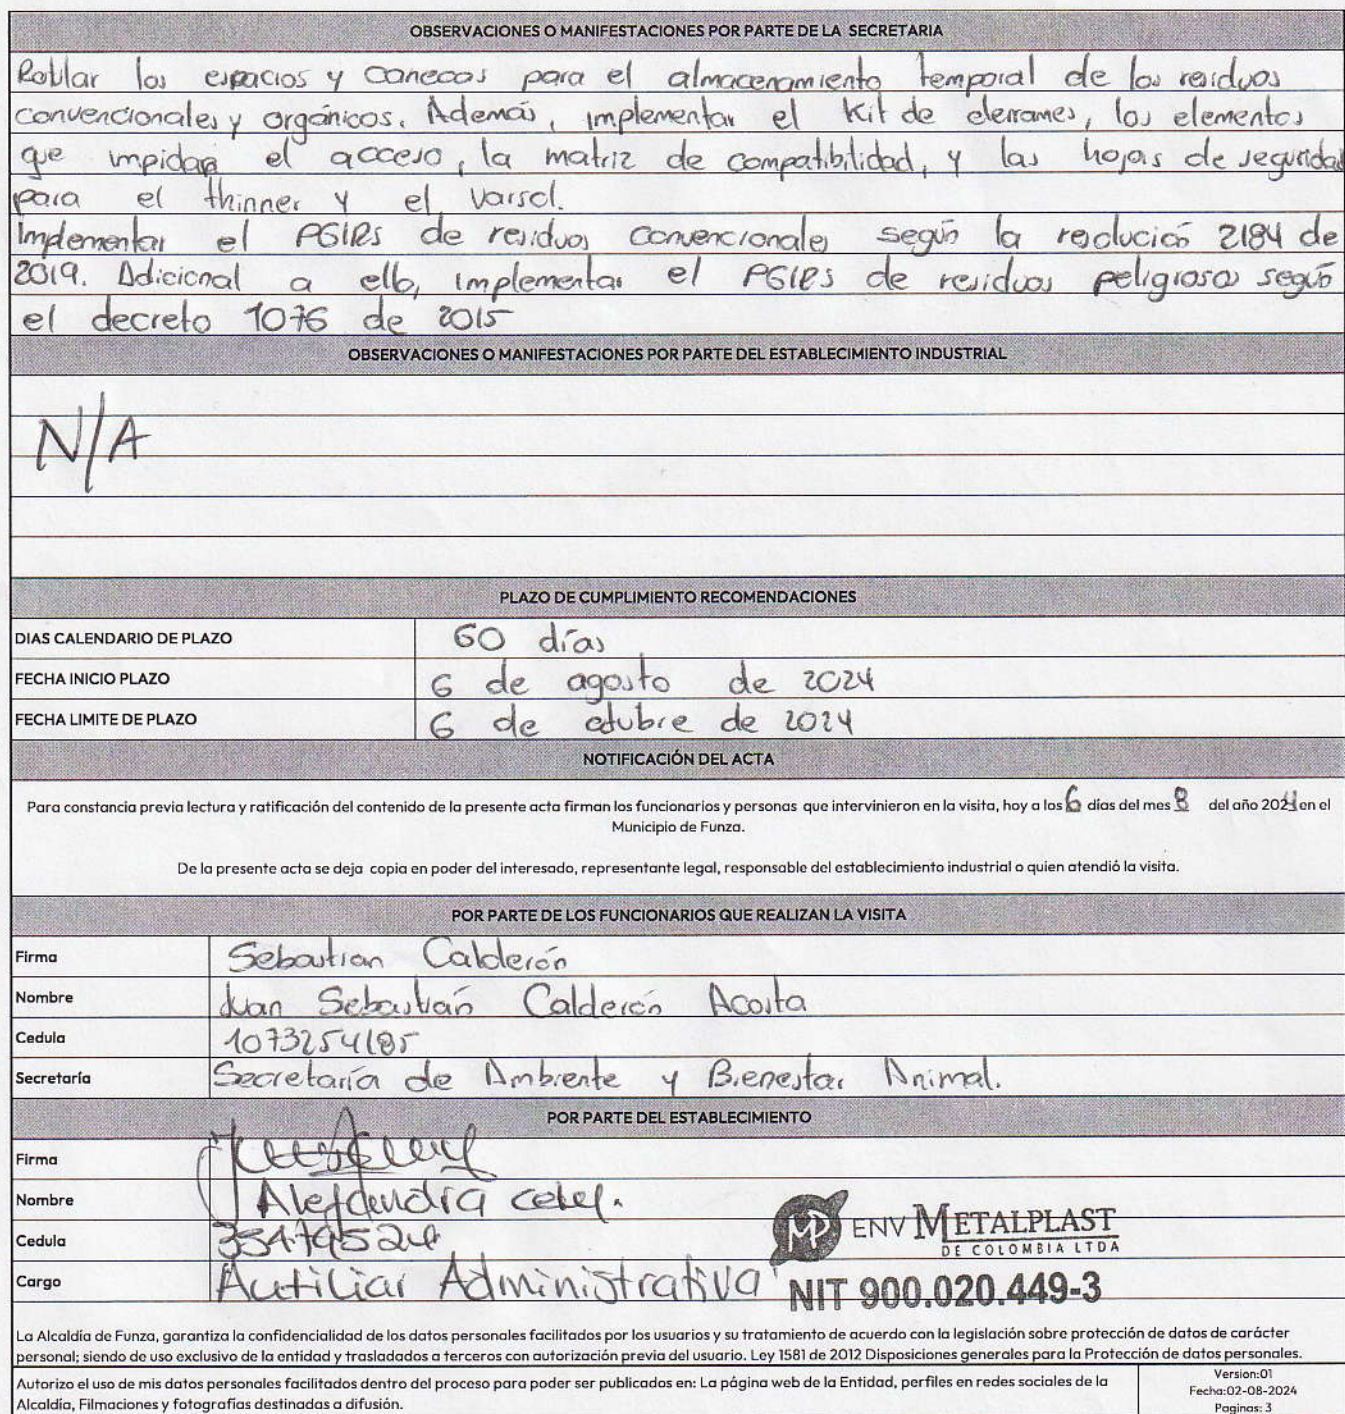 OBSERVACIONES O MANIFESTACIONES POR PARTE DE LA SECRETARIA
Rotular los espacios y canecas para el almacenamiento temporal de los residuos
convencionales y orgánicos. Además, implementar el Kit de derrames, los elementos
que impidan el acceso, la matriz de compatibilidad, y las hojas de seguridad
para el thinner y el varsol.
Implementar el PGIRS de residuos convencionales según la resolución 2184 de
2019. Adicional a ello, implementar el PGIRS de residuos peligrosos según
el decreto 1076 de 2015
OBSERVACIONES O MANIFESTACIONES POR PARTE DEL ESTABLECIMIENTO INDUSTRIAL
N/A
PLAZO DE CUMPLIMIENTO RECOMENDACIONES
DIAS CALENDARIO DE PLAZO 60 días
FECHA INICIO PLAZO 6 de agosto de 2024
FECHA LIMITE DE PLAZO 6 de octubre de 2024
NOTIFICACIÓN DEL ACTA
Para constancia previa lectura y ratificación del contenido de la presente acta firman los funcionarios y personas que intervinieron en la visita, hoy a los 6 días del mes 8 del año 2024 en el
Municipio de Funza.
De la presente acta se deja copia en poder del interesado, representante legal, responsable del establecimiento industrial o quien atendió la visita.
POR PARTE DE LOS FUNCIONARIOS QUE REALIZAN LA VISITA
Firma Sebastian Calderón
Nombre Juan Sebastián Calderón Acosta
Cedula 1073254185
Secretaría Secretaría de Ambiente y Bienestar Animal.
POR PARTE DEL ESTABLECIMIENTO
Firma
Nombre Alejandra
Cedula
MP ENV METALPLAST
DE COLOMBIA LTDA
Cargo Auxiliar Administrativa
NIT 900.020.449-3
La Alcaldía de Funza, garantiza la confidencialidad de los datos personales facilitados por los usuarios y su tratamiento de acuerdo con la legislación sobre protección de datos de carácter
personal; siendo de uso exclusivo de la entidad y trasladados a terceros con autorización previa del usuario. Ley 1581 de 2012 Disposiciones generales para la Protección de datos personales.
Autorizo el uso de mis datos personales facilitados dentro del proceso para poder ser publicados en: La página web de la Entidad, perfiles en redes sociales de la
Alcaldía, Filmaciones y fotografías destinadas a difusión.
Version:01
Fecha:02-08-2024
Paginas: 3